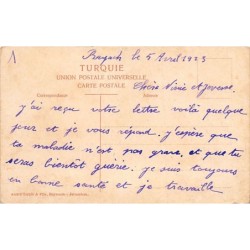 1
le 5 Avril 1923
TURQUIE
UNION POSTALE UNIVERSELLE
CARTE POSTALE
Correspondance Adresse
Chère
j'ai reçu votre lettre voilà quelque
jour et je vous répond. j'espère que
ta maladie n'est pas grave, et que tu
seras bientôt guérie. je suis toujours
en bonne santé et je travaille